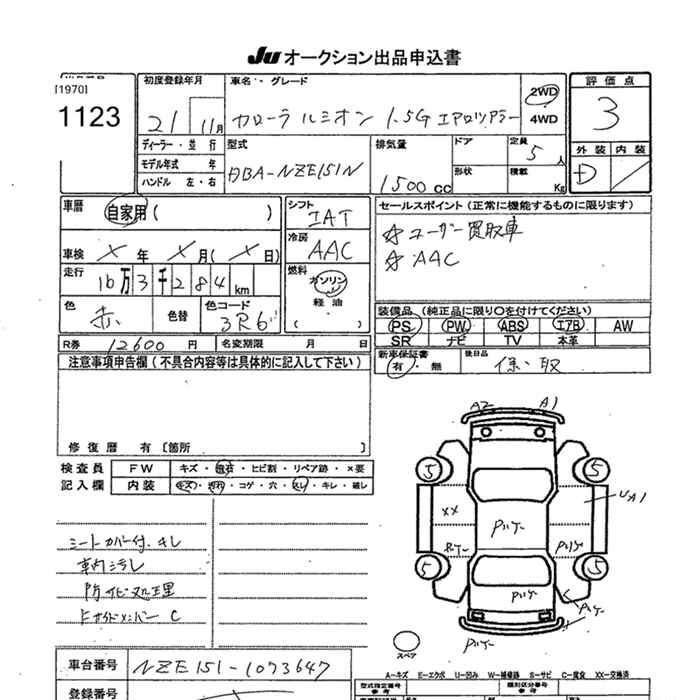 Ju オークション出品申込書
[1970]
1123
初度登録年月
21 11月
車名・グレード
カローラ ルミオン 1.5G エアロツアラー
2WD
4WD
評価点
3
外装 内装
D
ディーラー・並行
モデル年式 年
ハンドル 左・右
型式
DBA-NZE151N
排気量
1500 cc
ドア
形状
定員 5人
積載 Kg
車歴 自家用( )
車検 X年 X月(X日)
走行 10万3千284km
色 赤
色替
色コード 3R6
シフト IAT
冷房 AAC
燃料
ガソリン
軽油
( )
セールスポイント(正常に機能するものに限ります)
☆ユーザー買取車
☆AAC
装備品(純正品に限り○を付けてください)
PS PW ABS エアB AW
SR ナビ TV 本革
新車保証書
有・無
後日品
保、取
R券 12600円
名変期限 月 日
注意事項申告欄(不具合内容等は具体的に記入して下さい)
修復歴 有〔箇所 〕
検査員
記入欄
FW キズ・飛石・ヒビ割・リペア跡・×要
内装 キズ・汚れ・コゲ・穴・スレ・キレ・破レ
シートカバー付、キレ
車内汚レ
防サビ処理
Fサイドメンバー C
A2 A1
5 5
XX
UA1
5 5
スペア
車台番号 NZE151-1073647
登録番号
A−キズ E−エクボ U−凹み W−補修跡 S−サビ C−腐食 XX−交換済
型式指定番号
類別区分番号
参考